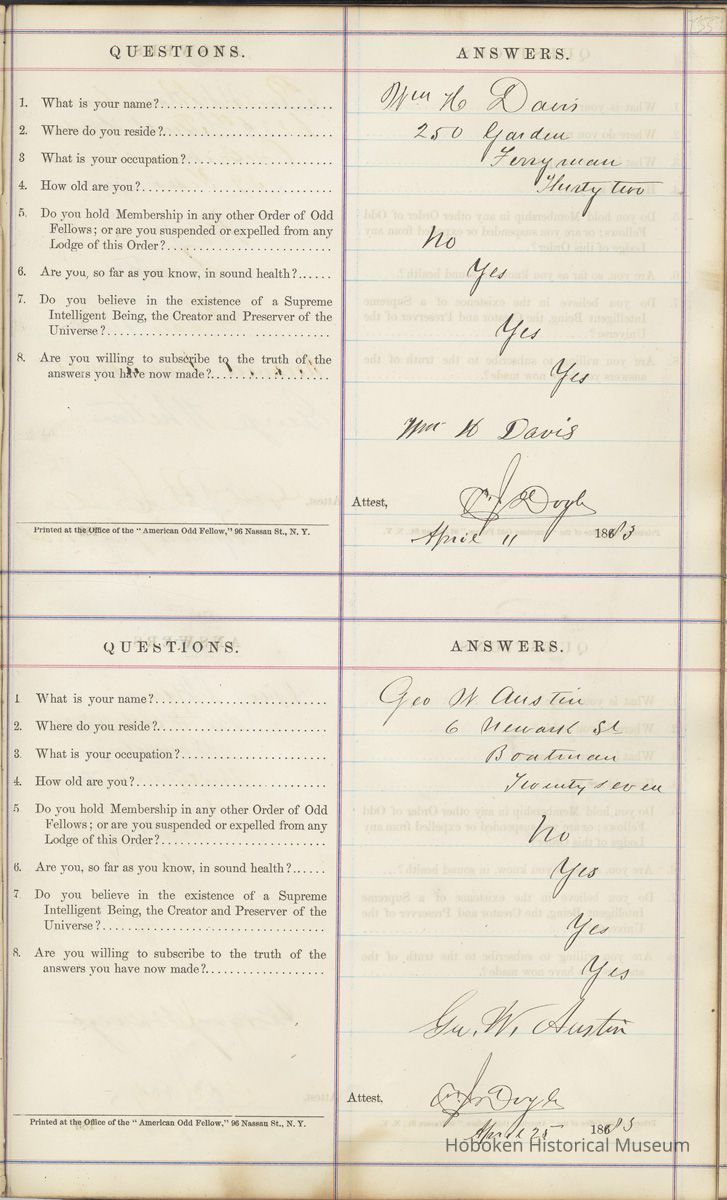 QUESTIONS.
ANSWERS.
1. What is your name?
Wm H Davis
2. Where do you reside?
250 Garden
3 What is your occupation?
Ferryman
4. How old are you?
Thirty two
5. Do you hold Membership in any other Order of Odd
Fellows; or are you suspended or expelled from any
Lodge of this Order?
No
6. Are you, so far as you know, in sound health?
Yes
7. Do you believe in the existence of a Supreme
Intelligent Being, the Creator and Preserver of the
Universe?
Yes
8. Are you willing to subscribe to the truth of the
answers you have now made?
Yes
Wm H Davis
Attest,
Doyle
Printed at the Office of the "American Odd Fellow," 96 Nassau St., N. Y.
April 11 1883
QUESTIONS.
ANSWERS.
1 What is your name?
Geo W. Austin
2. Where do you reside?
6 Newark St
3. What is your occupation?
Boatman
4. How old are you?
Twenty seven
5 Do you hold Membership in any other Order of Odd
Fellows; or are you suspended or expelled from any
Lodge of this Order?
No
6. Are you, so far as you know, in sound health?
Yes
7 Do you believe in the existence of a Supreme
Intelligent Being, the Creator and Preserver of the
Universe?
Yes
8. Are you willing to subscribe to the truth of the
answers you have now made?
Yes
Geo. W. Austin
Attest,
Doyle
Printed at the Office of the "American Odd Fellow," 96 Nassau St., N. Y.
April 25 1883
Hoboken Historical Museum